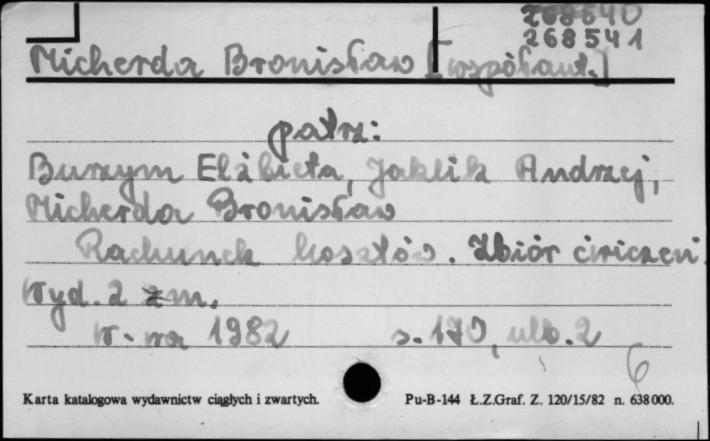 268540
268541
Micherda Bronisław [współaut.]
patrz:
Burzym Elżbieta, Jaklik Andrzej,
Micherda Bronisław
Rachunek kosztów. Zbiór ćwiczeń.
Wyd. 2 zm.
W-wa 1982 s. 170, ulb. 2
6
Karta katalogowa wydawnictw ciągłych i zwartych. Pu-B-144 Ł.Z.Graf. Z. 120/15/82 n. 638000.